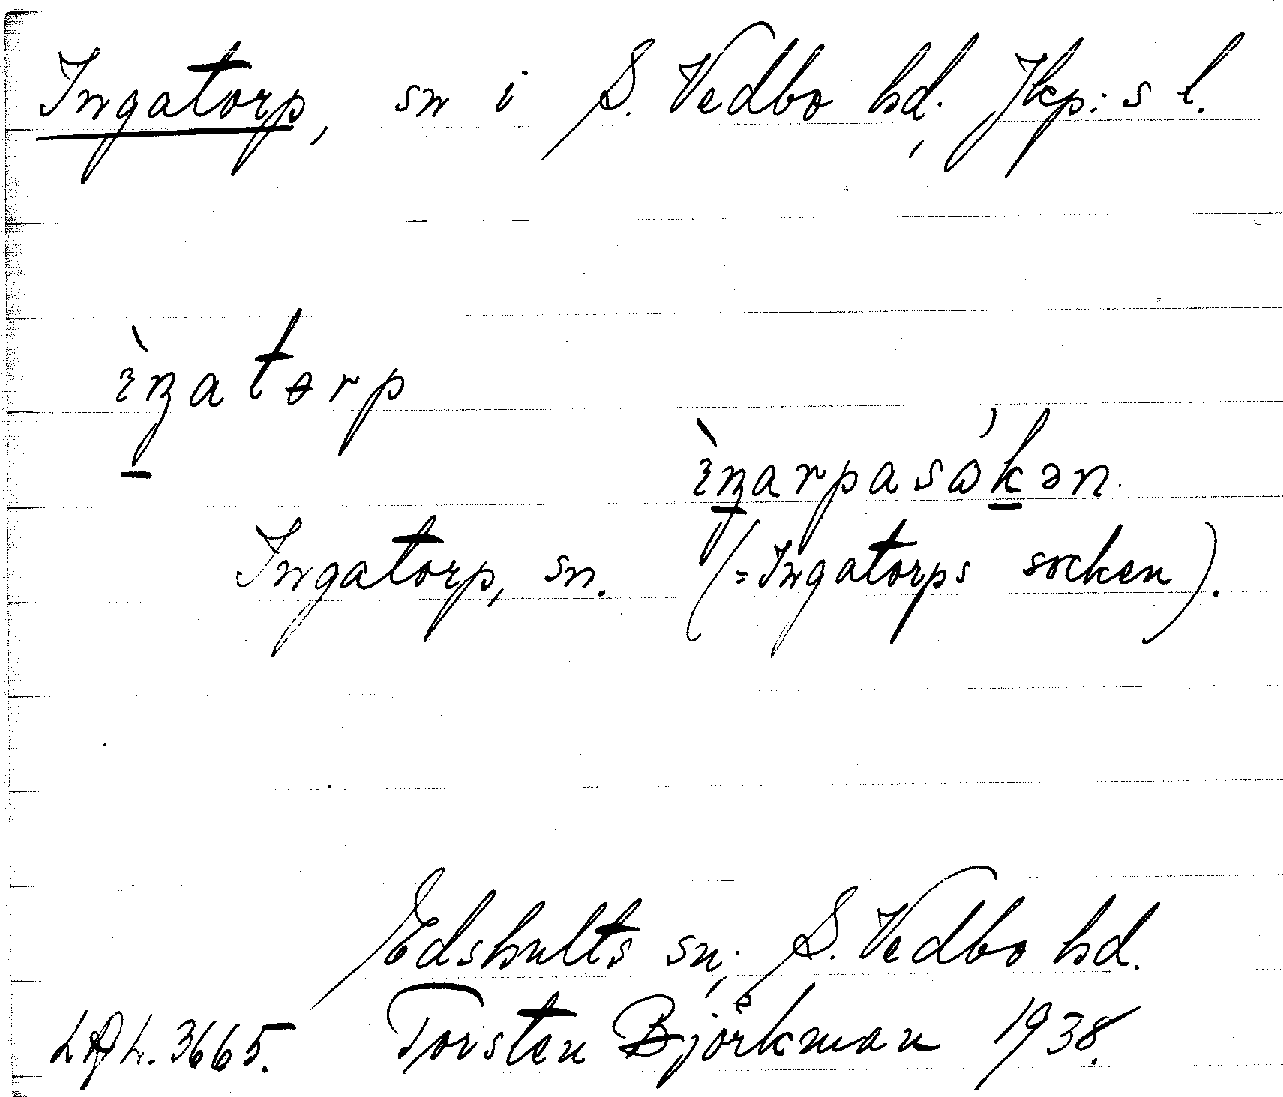 Ingatorp, sn i S. Vedbo hd, Jkp:s l.
ìŋatɵrp
ìŋarpasɷ́kən
Ingatorp, sn. (=Ingatorps socken).
Edshults sn; S. Vedbo hd.
LAL. 3665. Torsten Björkman 1938.